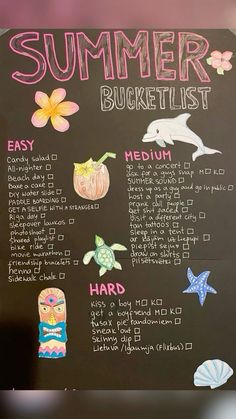 SUMMER
BUCKETLIST
EASY
Candy salad
All-nighter
Beach day
Bake a cake
Diy water slide
PADDLE BOARDING
GET A SELFIE WITH A STRANGER
Riga day
sleepover laukos
photoshoot
shared playlist
bike ride
movie marathon
friendship bracelets
henna
Sidewalk chalk
MEDIUM
go to a concert
ask for a guys snap M K
SUMMER SOUND
dress up as a guy and go in public
Host a party
prank call people
Get shit faced
Visit a different city
tan tattoos
sleep in a tent
sleepover
draw on shirts
pilsētsvētki
HARD
Kiss a boy M K
get a boyfriend M K
sneak out
Skinny dip
Lietuva/Igaunija (Flixbus)